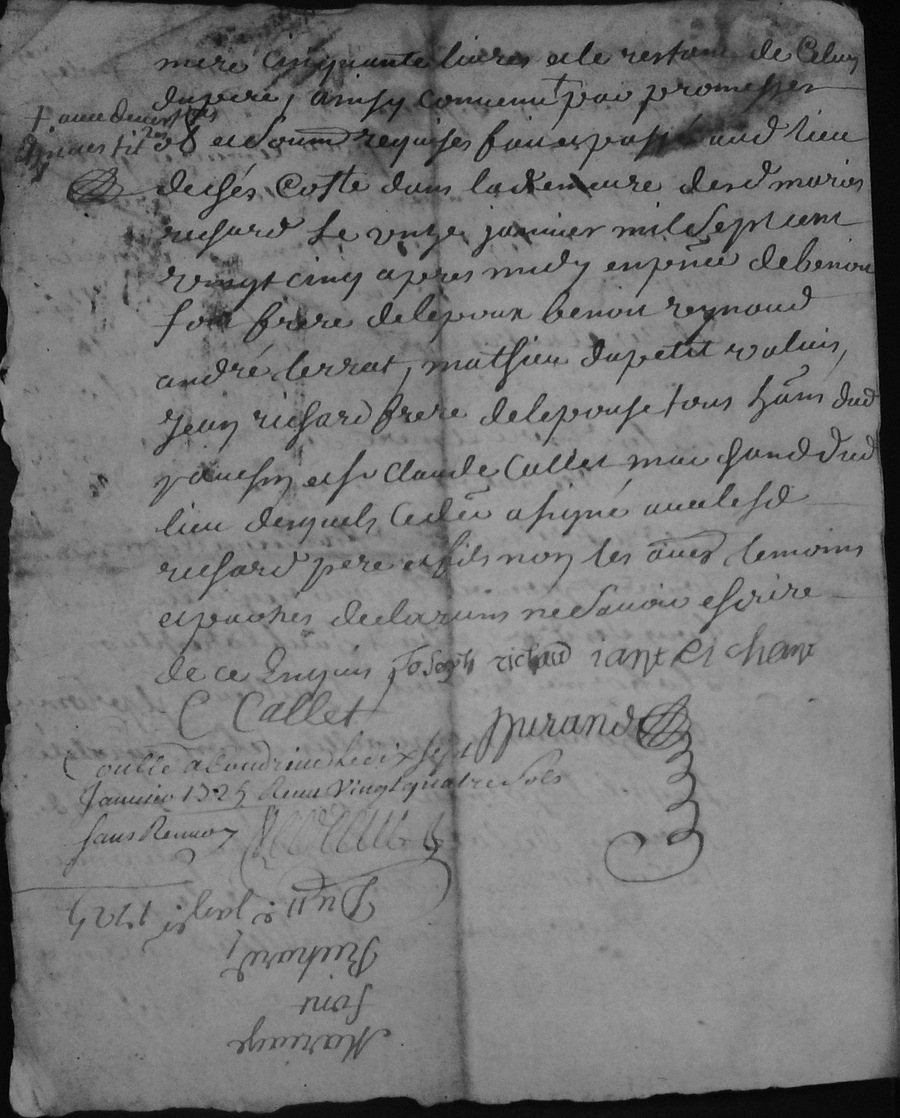 mere cinquante livres et le restant de Celuy
du pere, ainsy convenu + par promesses
+ avec
et Soum requises fait et passé aud lieu
de chés Coste dans la demeure desd maries
richard Le unze janvier mil Sept cent
vingt cinq apres midy en pñce de benoit
font frere de lepoux benoit reynaud
andré terrat, mathieu du petit
Jean richard frere de lepouse tous dud
et sr Claude Callet marchand dud
lieu desquels a signé avec lesd
richard pere et fils non les auts temoins
et parties declarans ne Savoir escrire
de ce Enquis Joseph richard
C Callet
Durand
Conllé a Condrieu Le dix Sept
Janvier 1725 Receu Vingt quatre Sols
Sans Renvoy
Mariage
font
Richard
Du 11e janvier 1725